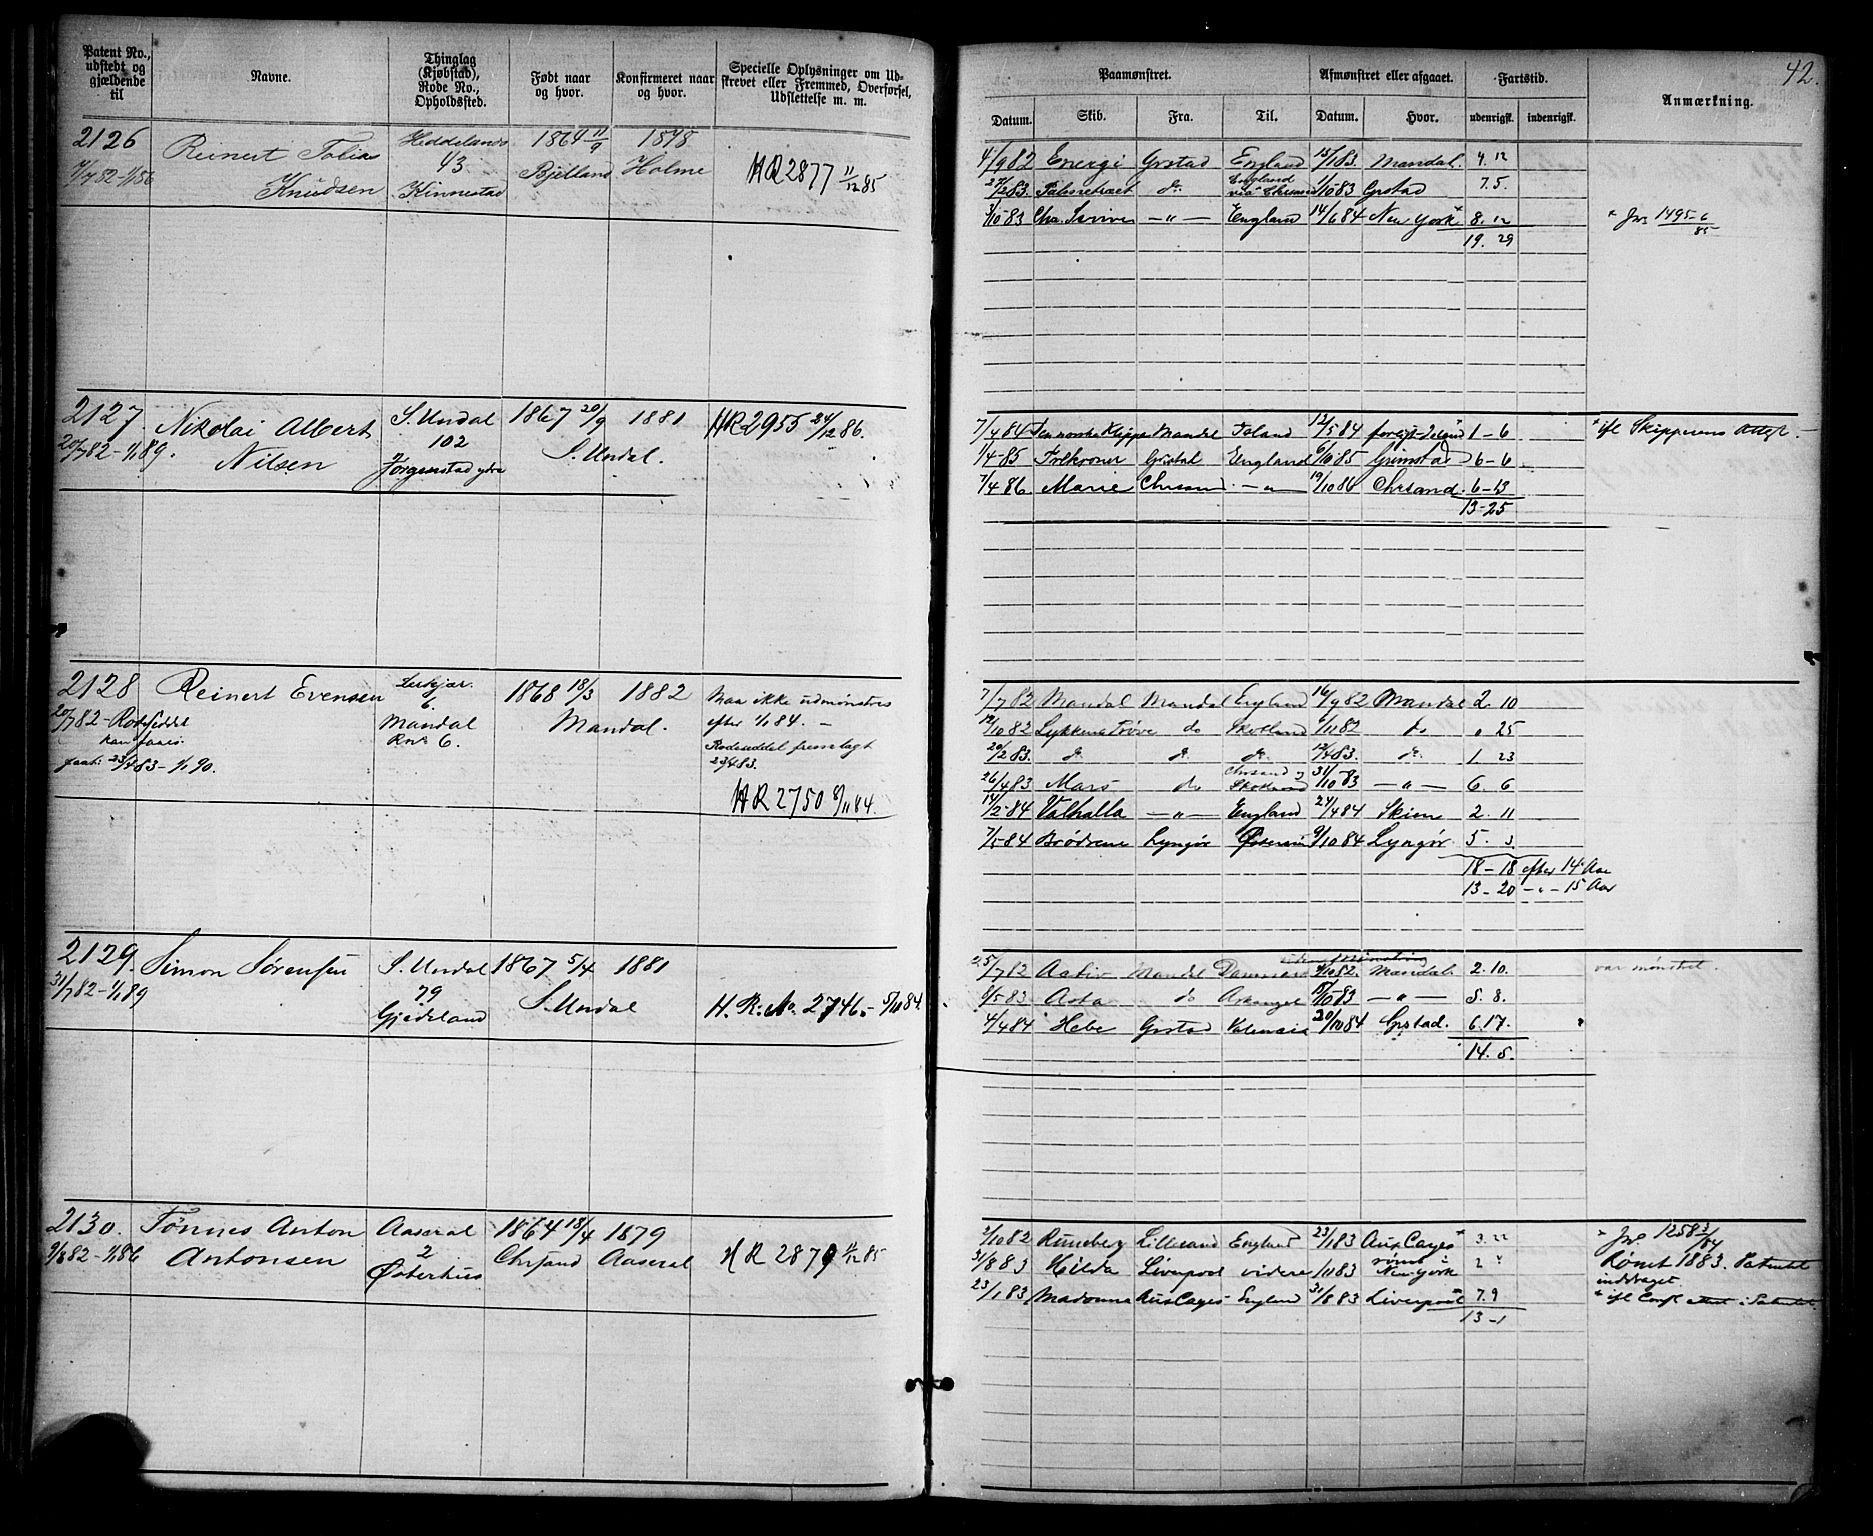 42.
Patent No., udstedt og gjældende til
Navne.
Thinglag (Kjøbstad), Rode No., Opholdssted.
Født naar og hvor.
Konfirmeret naar og hvor.
Specielle Oplysninger om Udskrevet eller Fremmed, Overførsel, Udslettelse m. m.
Paamønstret.
Afmønstret eller afgaaet.
Fartstid.
Anmærkning.
Datum.
Skib.
Fra.
Til.
Datum.
Hvor.
udenrigsk.
indenrigsk.
2126 Reinert Tobias Knudsen
7/7 82 - 1/1 86
Heddelands 43 Kinnestad
1864 11/9 Bjelland
1878 Holme
HR 2877 11/12 85
4/9 82 Energi Grstad England 15/1 83 Mandal. 4. 12
83. England via 1/10 83 Grstad 7. 5.
/10 83 — „ — England 14/6 84 New York* 8. 12
19. 29
* Jvs 1495-6/85
2127. Nikolai Albert Nilsen
20/7 82 - 1/1 89.
S. Undal 102 Jørgenstad ydre
1867 20/9 S. Undal.
1881
HR 2955 24/12 86.
7/4 84 Den norske Klippe Mandal 12/5 84 1 - 6
* ifl Skipperens Attest.
1/4 - 85 Trekroner Grstad England 6/10 85 Grimstad 6 - 6
7/4 86 Marie Chrsand — „ — 19/10 86 Chrsand. 6 - 13
13 - 25
2128 Reinert Evensen
20/7 82 -
23/4 83 - 1/1 90.
6 Mandal Rno 6.
1868 18/3 Mandal.
1882
Maa ikke udmønstres
efter 1/1 84. —
Rodeseddel fremlagt
23/4 83.
HR 2750 8/11 84.
7/7 82 Mandal Mandal England 16/9 82 Mandal 2. 10
19/10 82 Lykkens Prøve do Skotland /11 82 do „ 25
20/2 83. do do do 12/4 83. do 1 23
26/4 83 Mars do Chrsand & Skotland 31/10 83 — „ — 6. 6
14/2 - 84 Valhalla — „ — England 24/4 84 Skien 2. 11
7/5 84 Brødrene Lyngør 9/10 84 Lyngør 5. 3
18 - 18 efter 14 Aar
13 - 20 — „ — 15 Aar
2129. Simon Sørensen
31/7 82 - 1/1 89
S. Undal 79 Gjedeland
1867 5/4 S. Undal
1881
H. R. No. 2746. - 5/11 84.
25/7 82 Activ Mandal /10 82. Mandal 2. 10.
var mønstret.
/5 83 Asta do Arkangel /10 83 — „ — 5. 8.
4/4 84 Hebe Grstad Valencia 20/10 84 Grstad. 6. 17.
14. 5.
2130. Tønnes Anton Antonsen
9/8 82 - 1/1 86
Aaseral 2 Østerhus
1864 18/4 Chrsand
1879 Aaseral
HR 2879 11/12 85
2/10 82 Runeberg Lillesand England 23/1 83 Aux Cayes* 3. 22
* Jvs 1258 3/84
31/8 83 Hilda Liverpool videre /11 83 rømt i New York 2 „
Rømt 1883. Patentet inddraget.
23/1 83 Madonna Aux Cayes England 31/8 83 Liverpool* 7. 9
13 - 1